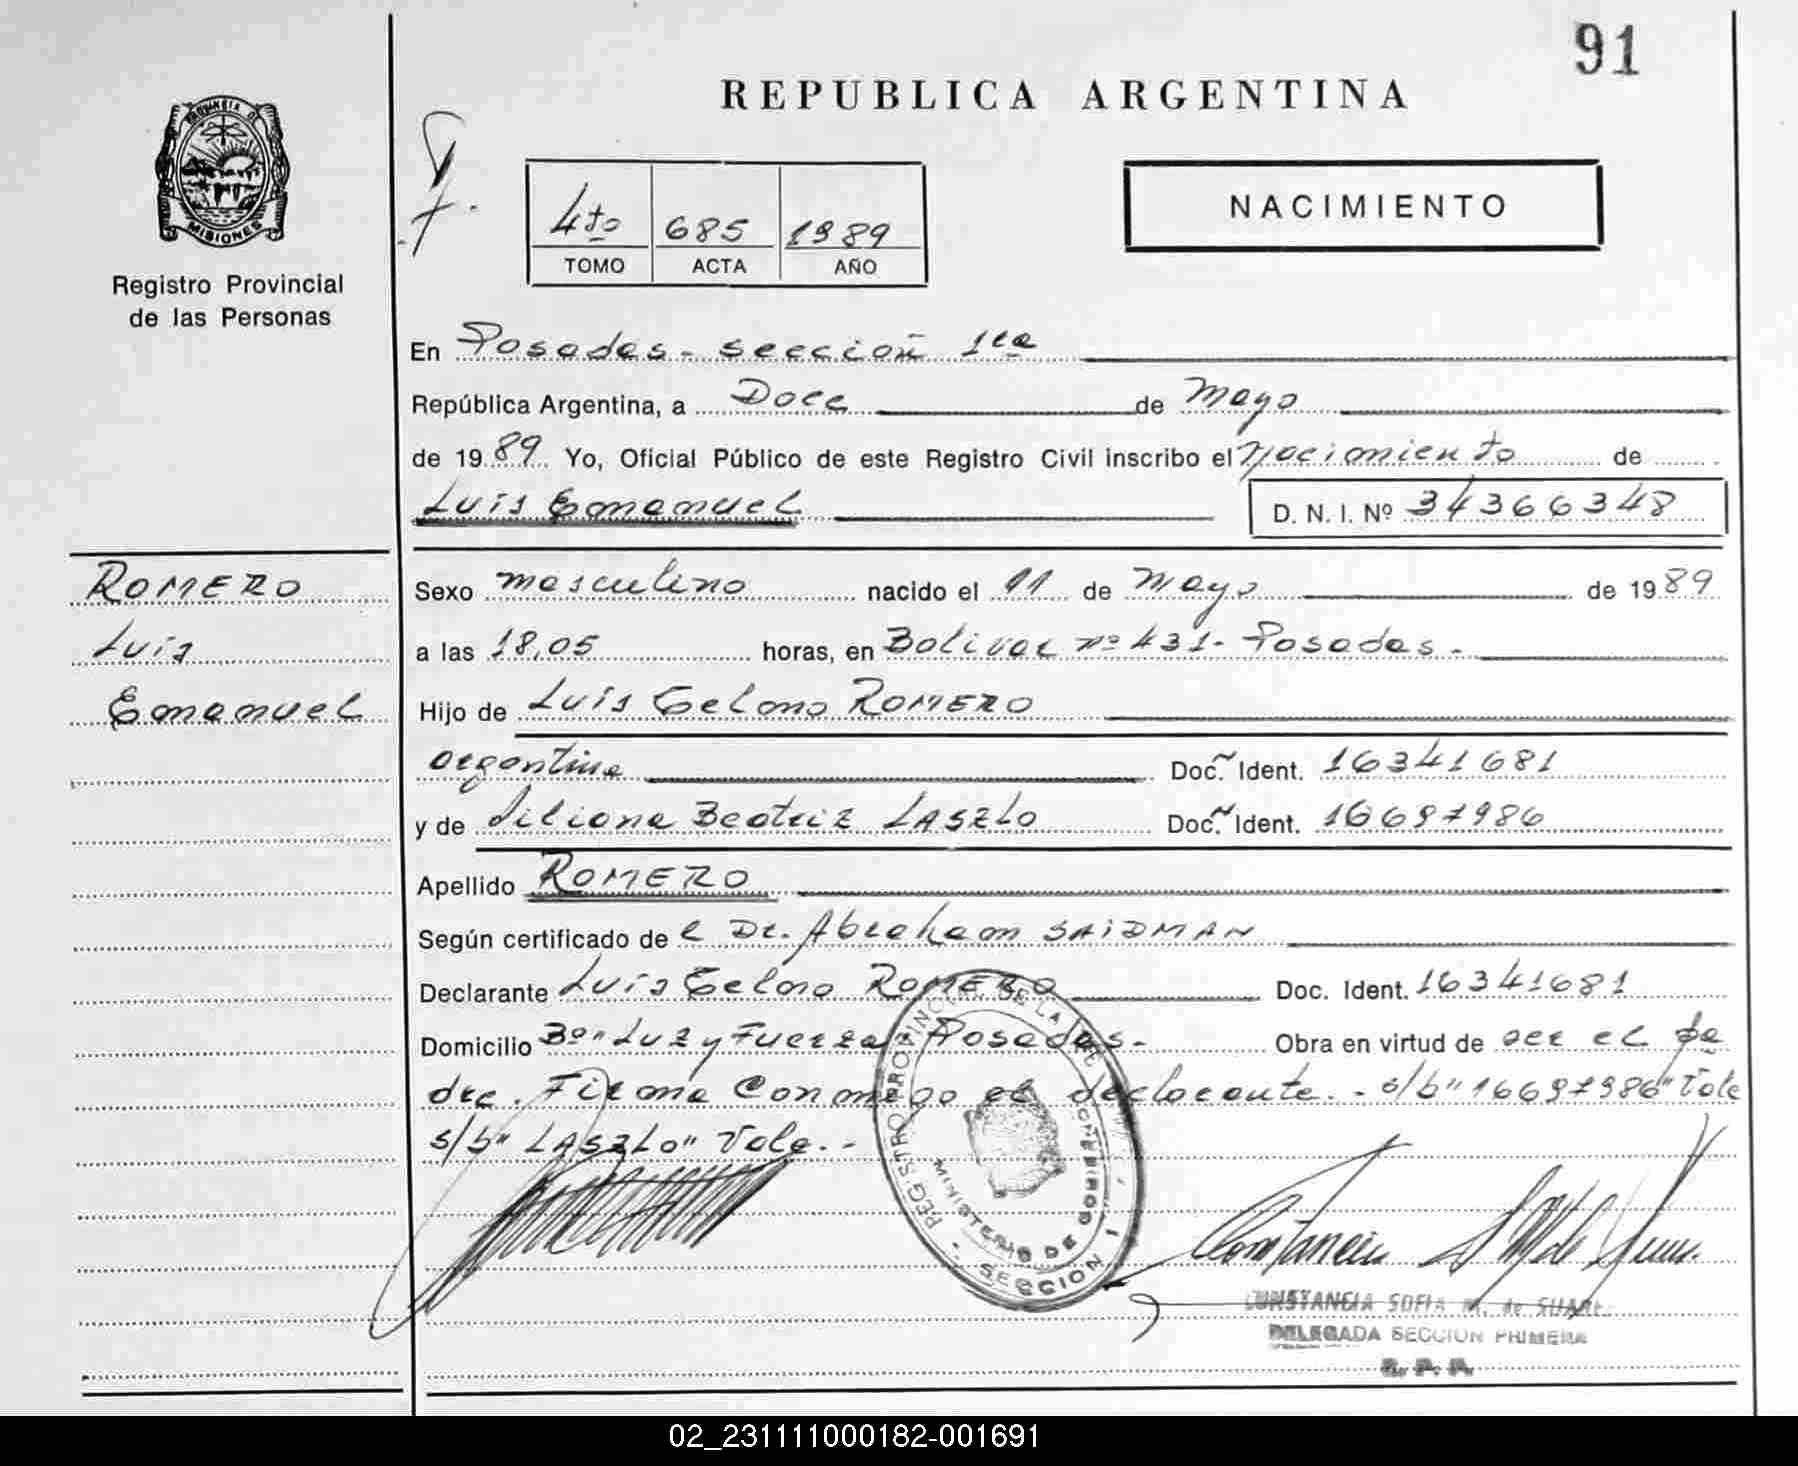 91
REPUBLICA ARGENTINA
PROVINCIA DE
MISIONES
Registro Provincial
de las Personas
4to 685 1989
TOMO ACTA AÑO
NACIMIENTO
En Posadas - sección 1ra
República Argentina, a Doce de Mayo
de 1989 Yo, Oficial Público de este Registro Civil inscribo el Nacimiento de
Luis Emanuel D. N. I. Nº 34366348
ROMERO
Luis
Emanuel
Sexo masculino nacido el 11 de Mayo de 1989
a las 18,05 horas, en Bolivar nº 431- Posadas -
Hijo de Luis ROMERO
argentina Doc. Ident. 16341681
y de Liliana Beatriz LASZLO Doc. Ident. 16697986
Apellido ROMERO
Según certificado de l Dr. Abraham SAIDMAN
Declarante Luis ROMERO Doc. Ident. 16341681
Domicilio Bº "Luz y Fuerza" Posadas - Obra en virtud de ser el pa
dre. Firma Conmigo el declarante. - s/b "16697986" Vale
s/b "LASZLO" Vale. -
REGISTRO PROVINCIAL DE LA
MINISTERIO DE GOBIERNO
SECCION 1
CONSTANCIA SOFIA M. de
DELEGADA SECCION PRIMERA
02_231111000182-001691